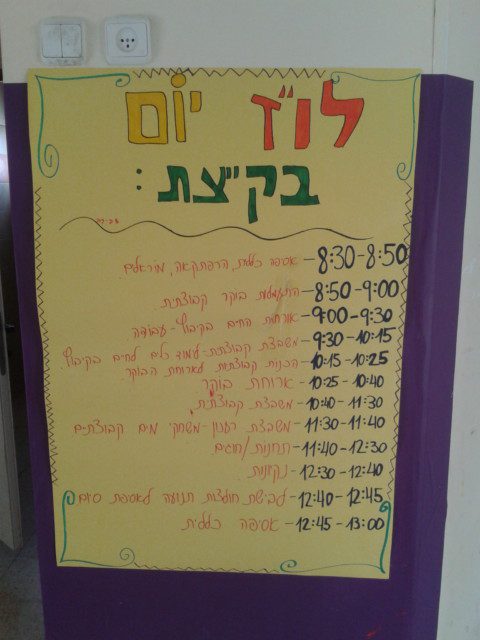 לו"ז יום
בק"צת:
8:30-8:50 - אסיפה כללית, הרפתקאה, מוראלים.
8:50-9:00 - התעמלות בוקר קבוצתית.
9:00-9:30 - אורחות החיים בקיבוץ-עבודה
9:30-10:15 - משבצת קבוצתית-לימוד כלים לחיים בקיבוץ
10:15-10:25 - הכנות קבוצתיות לארוחת הבוקר.
10:25-10:40 - ארוחת בוקר
10:40-11:30 - משבצת קבוצתית.
11:30-11:40 - משבצת רענון-משחקי מים קבוצתים
11:40-12:30 - תחנות/חוגים.
12:30-12:40 - נקיונות.
12:40-12:45 - לבישת חולצות תנועה לאספת סיום
12:45-13:00 - אסיפה כללית